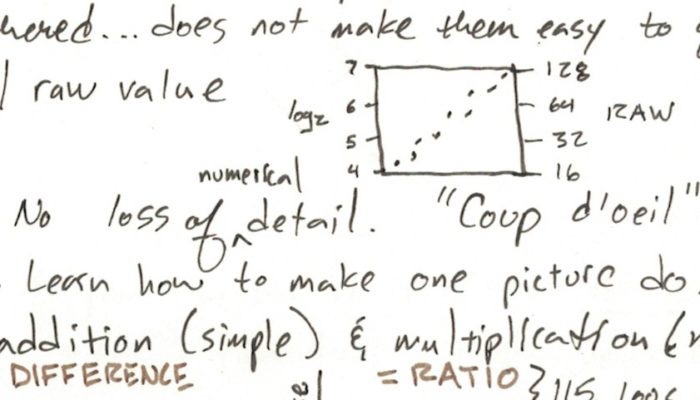 hered... does not make them easy to
raw value
log2
7
6
5
4
128
64
32
16
RAW
numerical
No loss of ^ detail. "Coup d'oeil"
Learn how to make one picture do
addition (simple) & multiplication (
DIFFERENCE = RATIO } 115 logs